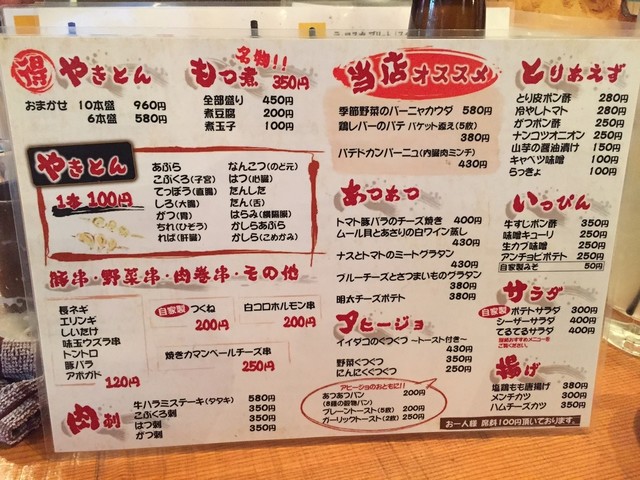 得 やきとん
おまかせ 10本盛 960円
6本盛 580円
名物!!
もつ煮 350円
全部盛り 450円
煮豆腐 200円
煮玉子 100円
やきとん
1本 100円
あぶら
こぶくろ(子宮)
てっぽう(直腸)
しろ(大腸)
がつ(胃)
ちれ(ひぞう)
れば(肝臓)
なんこつ(のど元)
はつ(心臓)
たんした
たん(舌)
はらみ(横隔膜)
かしらあぶら
かしら(こめかみ)
豚串・野菜串・肉巻串・その他
長ネギ
エリンギ
しいたけ
味玉ウズラ串
トントロ
豚バラ
アボガド
120円
自家製 つくね
200円
白コロホルモン串
200円
焼きカマンベールチーズ串
250円
肉刺
牛ハラミステーキ(タタキ) 580円
こぶくろ刺 350円
はつ刺 350円
がつ刺 350円
当店オススメ
季節野菜のバーニャカウダ 580円
鶏レバーのパテ バケット添え(5枚)
380円
パテドカンパーニュ(内臓肉ミンチ)
430円
あつあつ
トマト豚バラのチーズ焼き 400円
ムール貝とあさりの白ワイン蒸し
430円
ナスとトマトのミートグラタン
380円
ブルーチーズとさつまいものグラタン
380円
明太チーズポテト 380円
アヒージョ
イイダコのぐつぐつ ～トースト付き～
430円
野菜ぐつぐつ 350円
にんにくぐつぐつ 250円
アヒージョのおともに!!
あつあつパン 200円
(8種の穀物パン)
プレーントースト(5枚) 200円
ガーリックトースト(2枚) 250円
とりあえず
とり皮ポン酢 280円
冷やしトマト 280円
がつポン酢 250円
ナンコツオニオン 250円
山芋の醤油漬け 150円
キャベツ味噌 100円
らっきょ 100円
いっぴん
牛すじポン酢 350円
味噌キューリ 250円
生カブ味噌 250円
アンチョビポテト 250円
自家製みそ 50円
サラダ
自家製 ポテトサラダ 300円
シーザーサラダ 400円
てるてるサラダ 400円
揚げ
塩鶏もも唐揚げ 380円
メンチカツ 300円
ハムチーズカツ 350円
お一人様 席料100円頂いております。